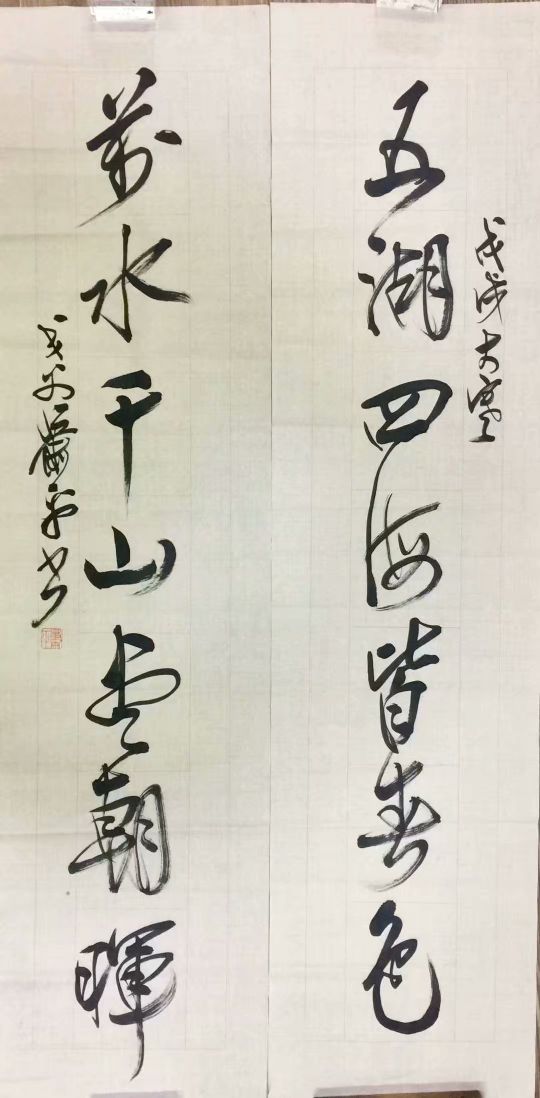 戊戌大寒
五湖四海皆春色
萬水千山盡朝暉
书